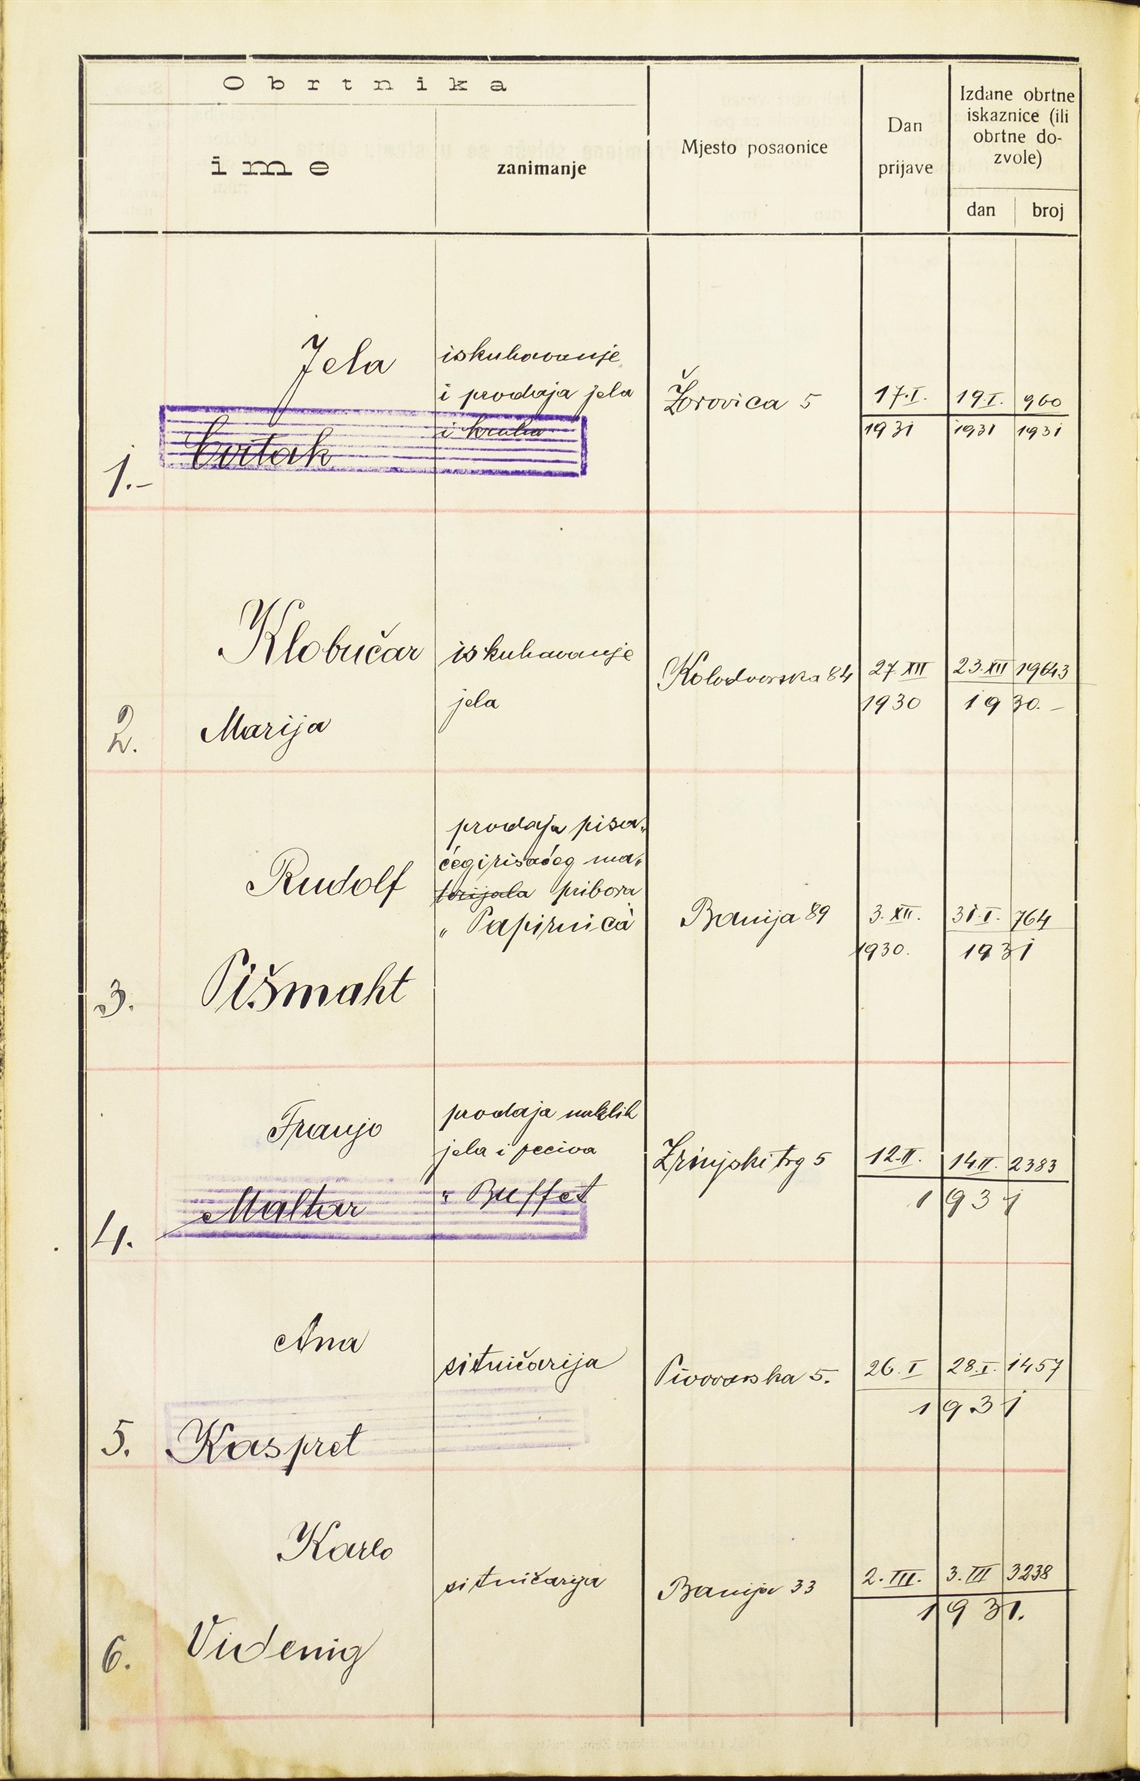 Obrtnika
ime
zanimanje
Mjesto posaonice
Dan
prijave
Izdane obrtne
iskaznice (ili
obrtne do-
zvole)
dan
broj
1.-
Jela
Cvrtak
iskuhavanje
i prodaja jela
i kruha
Žorovica 5
17.I.
1931
19.I.
1931
960
1931
2.
Klobučar
Marija
iskuhavanje
jela
Kolodvorska 84
27 XII
1930
23.XII
19643
1930.-
3.
Rudolf
Pišmaht
prodaja pisa„
ćeg i risaćeg ma„
terijala pribora
„Papirnica"
Banija 89
3. XII.
1930.
31.I.
764
1931
4.
Franjo
Maltar
prodaja
jela i peciva
"Buffet
Zrinjski trg 5
12.II.
14.II.
2383
1931
5.
Ana
Kaspret
sitničarija
Pivovarska 5.
26.I
28.I.
1457
1931
6.
Karlo
Videnig
sitničarija
Banija 33
2.III.
3.III
3238
1931.